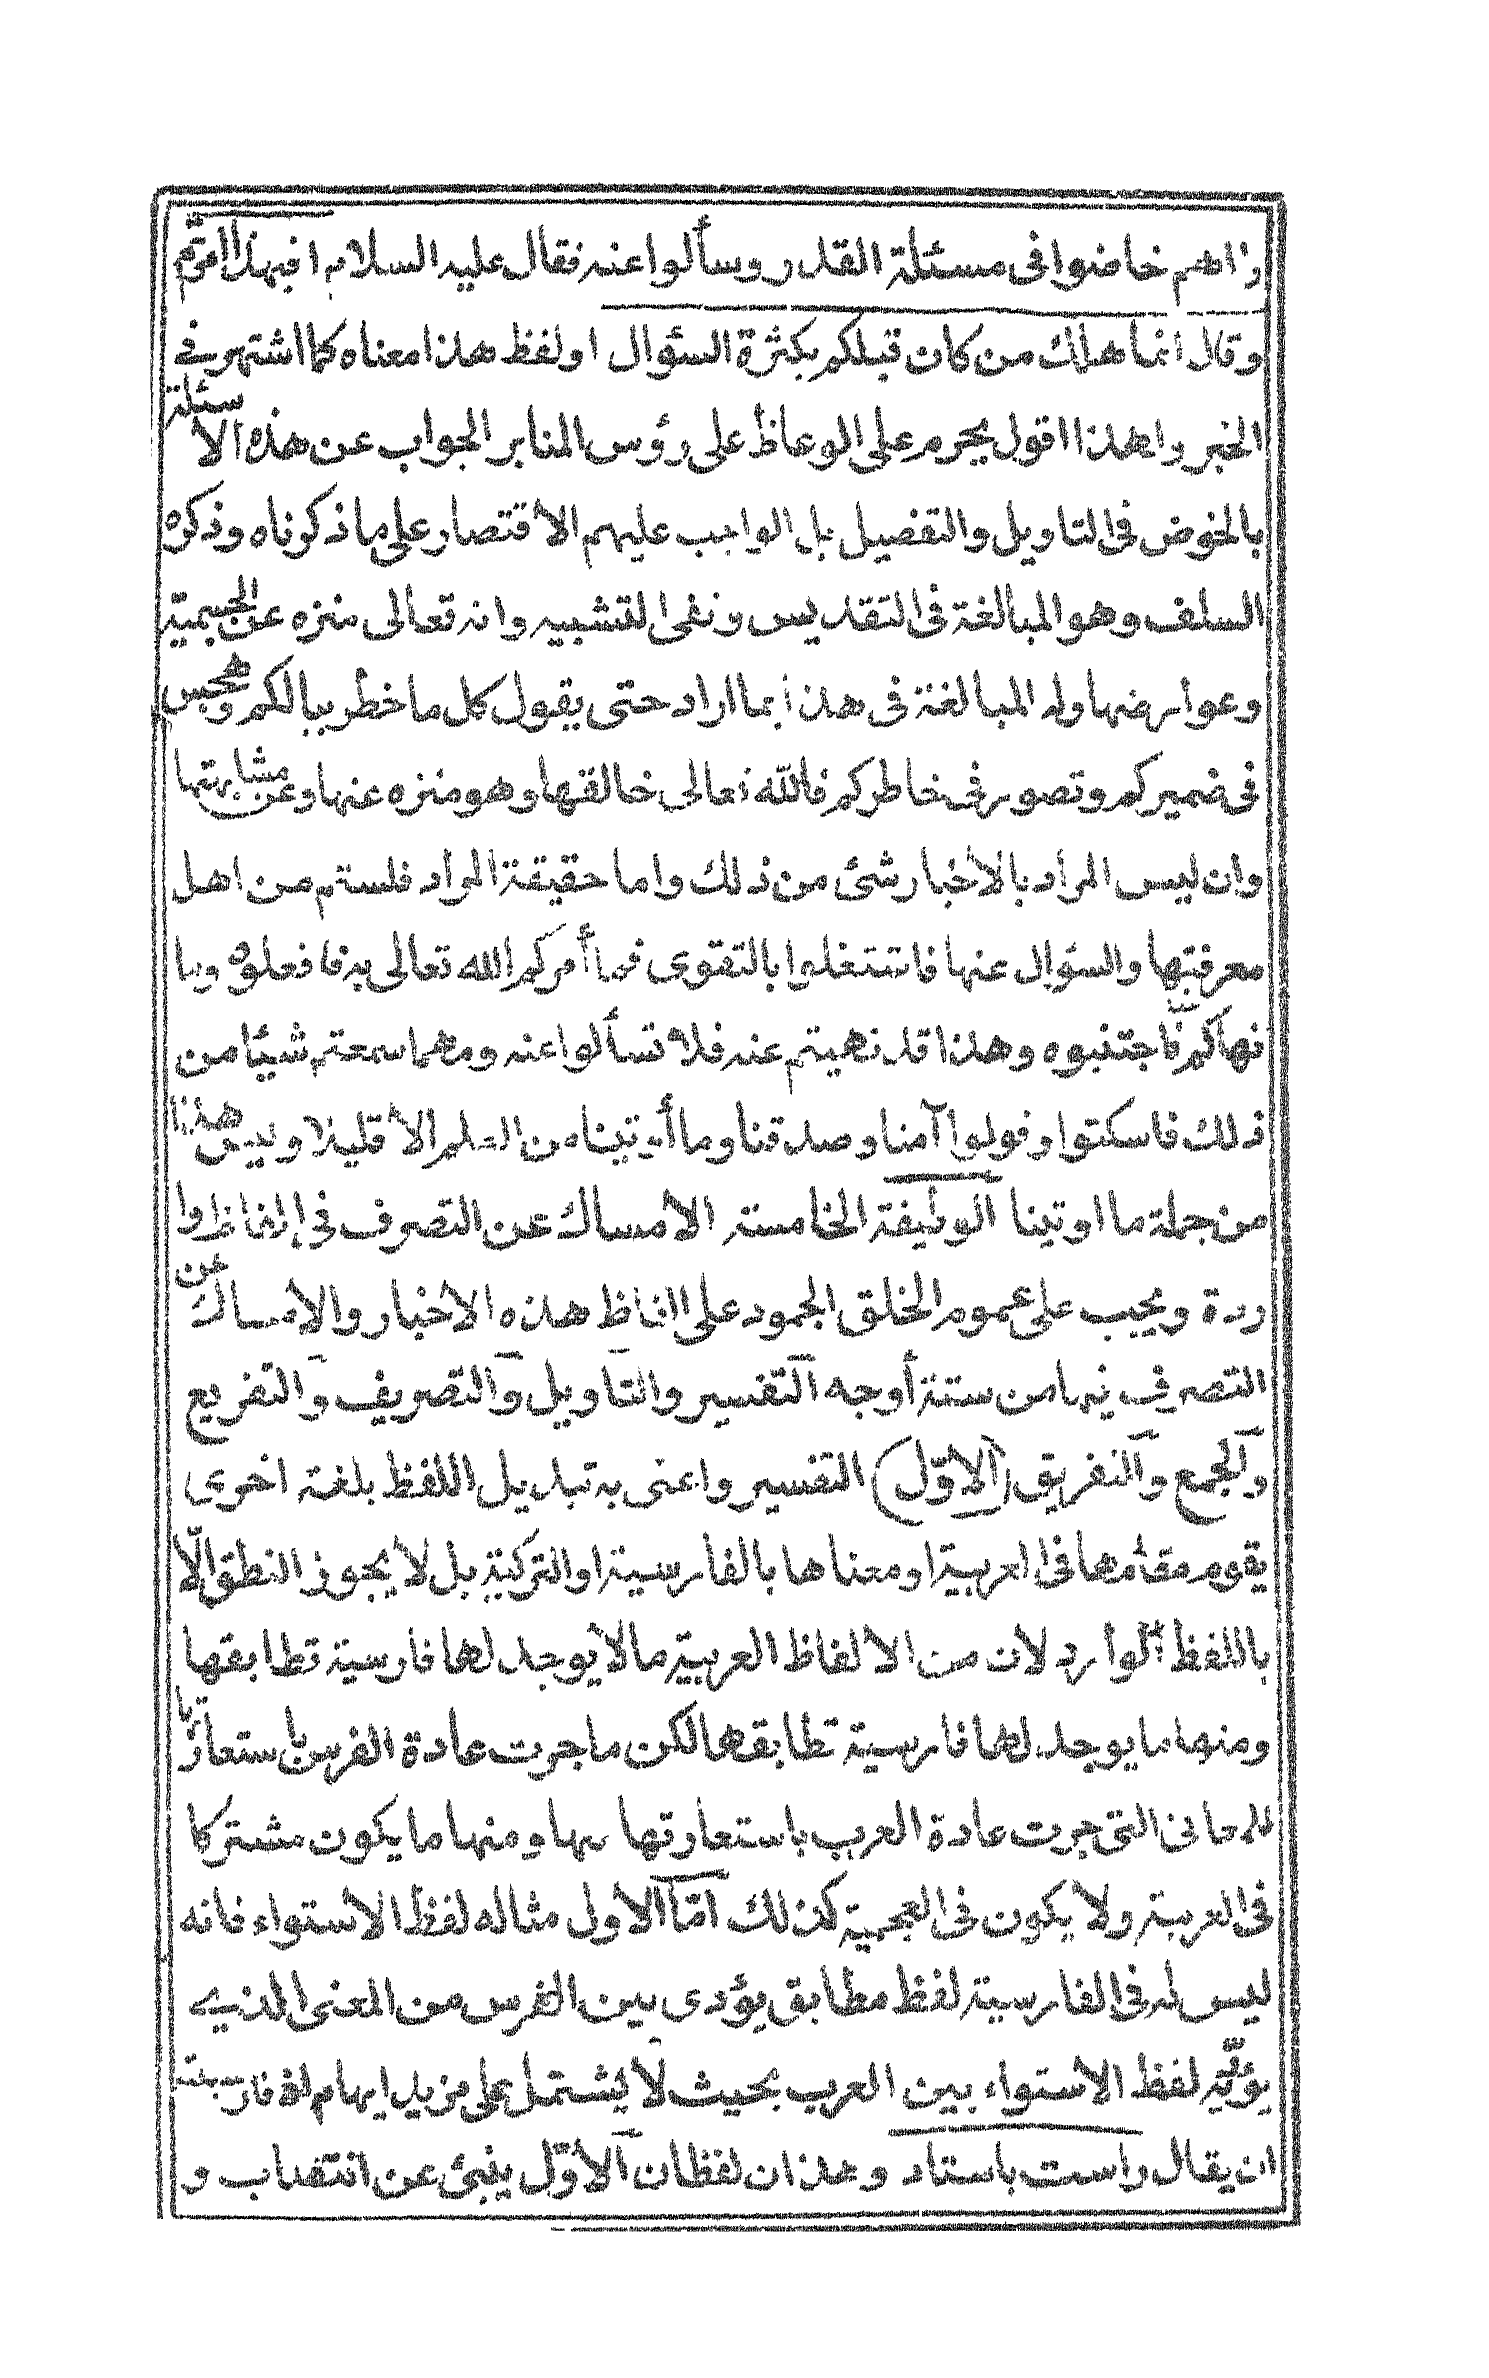 راهم خاضوا فى مسئلة القدر وسألوا عنه فقال عليه السلام افبهذا امرتم
وقال انما هلك من كان قبلكم بكثرة السؤال او لفظ هذا معناه كما اشتهر فى
الخبر ولهذا اقول يحرم على الوعاظ على رؤس المنابر الجواب عن هذه الاسئلة
بالخوض فى التاويل والتفصيل بل الواجب عليهم الاقتصار على ما ذكرناه وذكره
السلف وهو المبالغة فى التقديس ونفى التشبيه وانه تعالى منزه عن الجسمية
وعوارضها وله المبالغة فى هذا بما اراد حتى يقول كل ما خطر ببالكم وهجس
فى ضميركم وتصور فى خاطركم فالله تعالى خالقها وهو منزه عنها وعن مشابهتها
وان ليس المراد بالاخبار شئ من ذلك واما حقيقة المراد فلستم من اهل
معرفتها والسؤال عنها فاشتغلوا بالتقوى فما أمركم الله تعالى به فافعلوه وما
نهاكم فاجتنبوه وهذا قد نهيتم عنه فلا تسألوا عنه ومهما سمعتم شيئا من
ذلك فاسكتوا وقولوا آمنا وصدقنا وما أوتينا من العلم الا قليلا وليس هذا
من جملة ما اوتينا الوظيفة الخامسة الامساك عن التصرف فى الفاظ وا
ردة ويجب على عموم الخلق الجمود على الفاظ هذه الاخبار والامساك عن
التصرف فيها من ستة أوجه التفسير والتاويل والتصريف والتفريع
والجمع والتفريق (الاوّل) التفسير واعنى به تبديل اللفظ بلغة اخرى
يقوم مقامها فى العربية او معناها بالفارسية او التركية بل لا يجوز النطق الّا
باللفظ الوارد لان من الالفاظ العربية ما لا يوجد لها فارسية تطابقها
ومنها ما يوجد لها فارسية تطابقها لكن ما جرت عادة الفرس باستعارتها
للمعانى التى جرت عادة العرب باستعارتها بها ومنها ما يكون مشتركا
فى العربية ولا يكون فى العجمية كذلك امّا الاول مثاله لفظ الاستواء فانه
ليس له فى الفارسية لفظ مطابق يؤدى بين الفرس من المعنى الذى
يؤدّيه لفظ الاستواء بين العرب بحيث لا يشتمل على مزيد ايهام اذ فارسيته
ان يقال راست باستاد وهذان لفظان الاوّل ينبئ عن انتصاب و